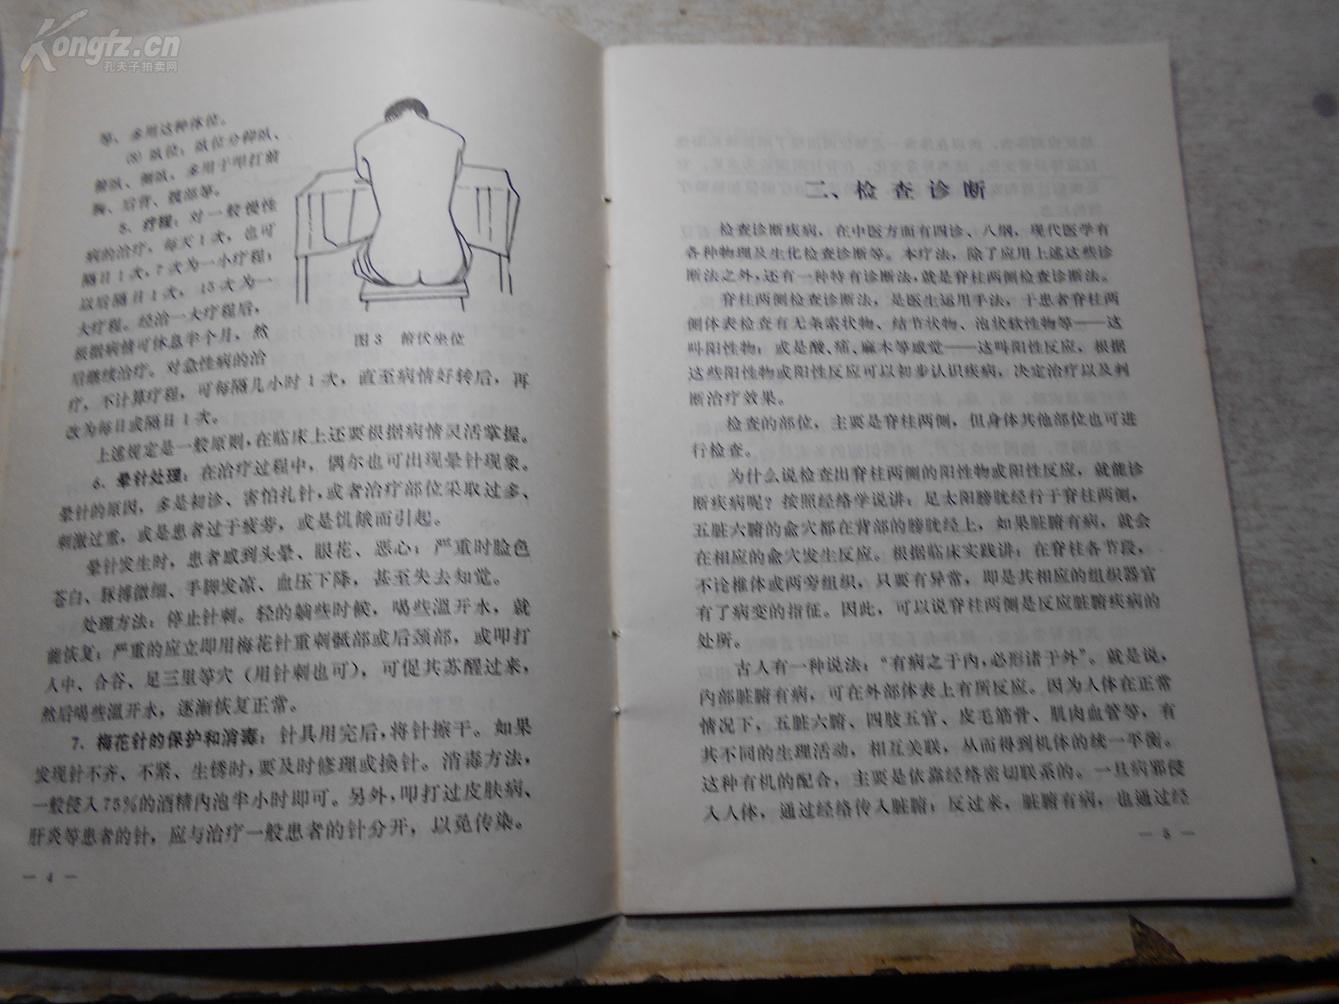 Kongfz.cn
孔夫子拍卖网
等、多用这种体位。
(8) 卧位：卧位分仰卧、
俯卧、侧卧，多用于叩打前
胸、后背、腹部等。
5. 疗程：对一般慢性
病的治疗，每天1次，也可
隔日1次，7次为一小疗程；
以后隔日1次，15次为一
大疗程。经治一大疗程后，
根据病情可休息半个月，然
后继续治疗。对急性病的治
疗，不计算疗程，可每隔几小时1次，直至病情好转后，再
改为每日或隔日1次。
上述规定是一般原则，在临床上还要根据病情灵活掌握。
6. 晕针处理：在治疗过程中，偶尔也可出现晕针现象。
晕针的原因，多是初诊、害怕扎针，或者治疗部位采取过多、
刺激过重，或是患者过于疲劳，或是饥饿而引起。
晕针发生时，患者感到头晕、眼花、恶心；严重时脸色
苍白、脉搏微细、手脚发凉、血压下降，甚至失去知觉。
处理方法：停止针刺。轻的躺些时候，喝些温开水，就
能恢复；严重的应立即用梅花针重刺骶部或后颈部，或叩打
人中、合谷、足三里等穴（用针刺也可），可促其苏醒过来，
然后喝些温开水，逐渐恢复正常。
7. 梅花针的保护和消毒：针具用完后，将针擦干。如果
发现针不齐、不紧、生锈时，要及时修理或换针。消毒方法，
一般侵入75%的酒精内泡半小时即可。另外，叩打过皮肤病、
肝炎等患者的针，应与治疗一般患者的针分开，以免传染。
— 4 —
图3 俯伏坐位
二、检查诊断
检查诊断疾病，在中医方面有四诊、八纲，现代医学有
各种物理及生化检查诊断等。本疗法，除了应用上述这些诊
断法之外，还有一种特有诊断法，就是脊柱两侧检查诊断法。
脊柱两侧检查诊断法，是医生运用手法，于患者脊柱两
侧体表检查有无条索状物、结节状物、泡状软性物等——这
叫阳性物；或是酸、痛、麻木等感觉——这叫阳性反应，根据
这些阳性物或阳性反应可以初步认识疾病，决定治疗以及判
断治疗效果。
检查的部位，主要是脊柱两侧，但身体其他部位也可进
行检查。
为什么说检查出脊柱两侧的阳性物或阳性反应，就能诊
断疾病呢？按照经络学说讲：足太阳膀胱经行于脊柱两侧，
五脏六腑的俞穴都在背部的膀胱经上，如果脏腑有病，就会
在相应的俞穴发生反应。根据临床实践讲：在脊柱各节段，
不论椎体或两旁组织，只要有异常，即是其相应的组织器官
有了病变的指征。因此，可以说脊柱两侧是反应脏腑疾病的
处所。
古人有一种说法：“有病之于内，必形诸于外”。就是说，
内部脏腑有病，可在外部体表上有所反应。因为人体在正常
情况下，五脏六腑、四肢五官、皮毛筋骨、肌肉血管等，有
其不同的生理活动，相互关联，从而得到机体的统一平衡。
这种有机的配合，主要是依靠经络密切联系的。一旦病邪侵
入人体，通过经络传入脏腑；反过来，脏腑有病，也通过经
— 5 —